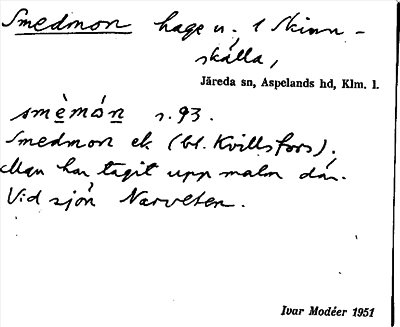 Smedmon hage u. 1 Skinn-
skälla,
Järeda sn, Aspelands hd, Klm. l.
smèmón s. 93.
Smedmon ek (bl. Kvillsfors),
Man har tagit upp malm där.
Vid sjön Narveten.
Ivar Modéer 1951